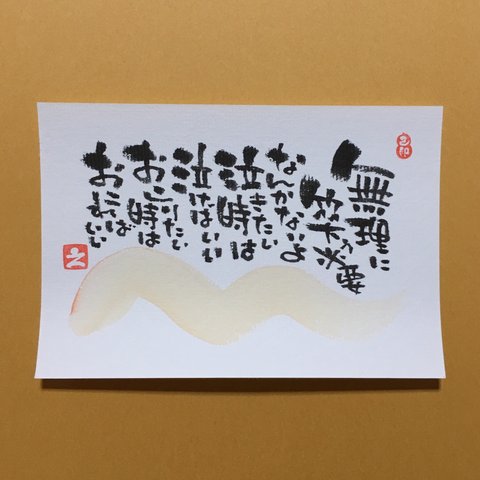 無理に
笑う必要
なんかないよ
泣きたい
時は
泣けばいい
おこりたい
時は
おこればいい